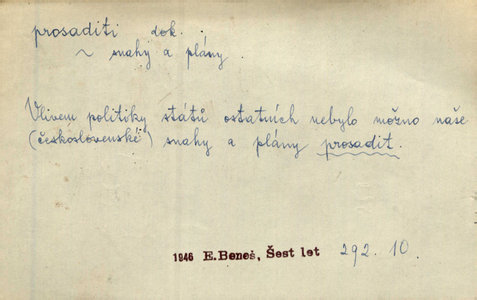 prosaditi dok.
~ snahy a plány
Vlivem politiky států ostatních nebylo možno naše
(československé) snahy a plány prosadit.
1946 E. Beneš, Šest let 292. 10.